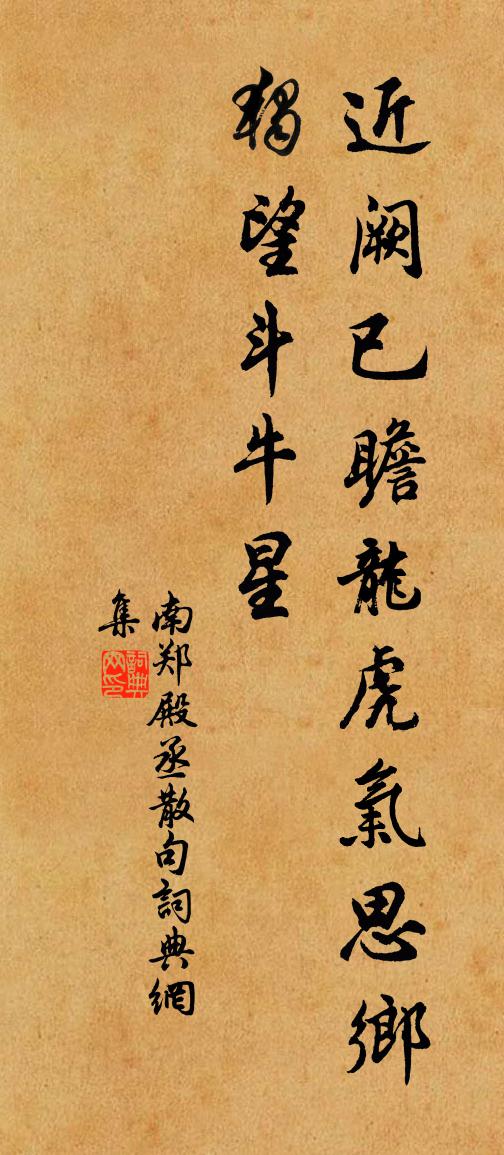 近阙已瞻龍虎氣思鄉
獨望斗牛星
南郑殿丞散句詞典網
集
詞典
网印